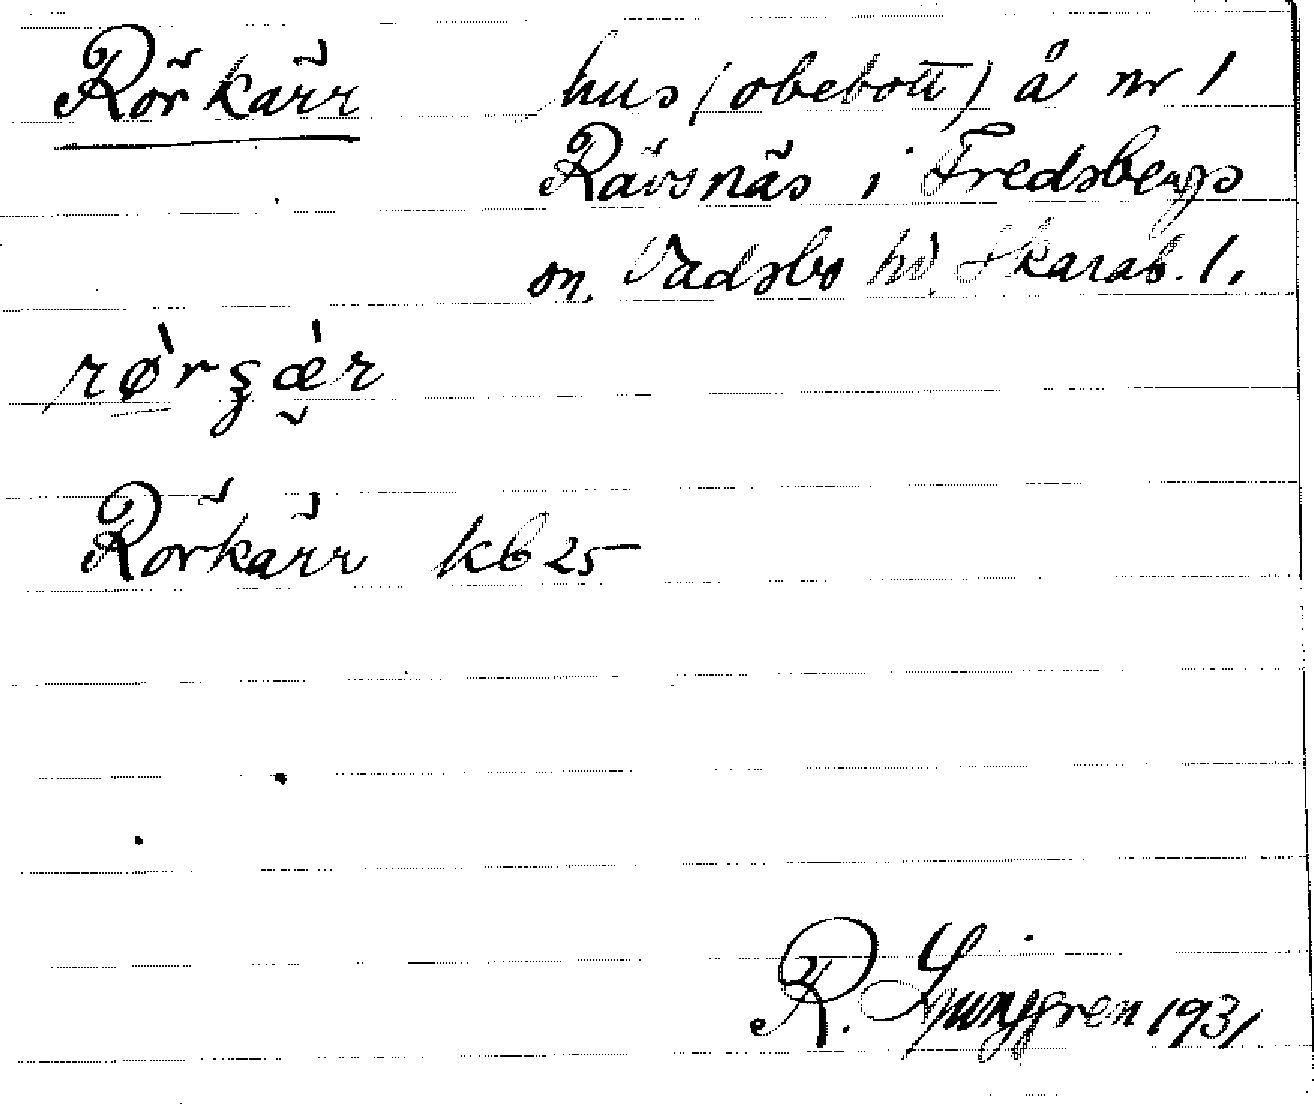 Rörkärr hus (obebott) å nr 1
Rävsnäs i Fredsbergs
sn. Vadsbo hd. Skarab. l.
rø̀rʂæ̀r
Rörkärr kb 25
R. Ljunggren 1931